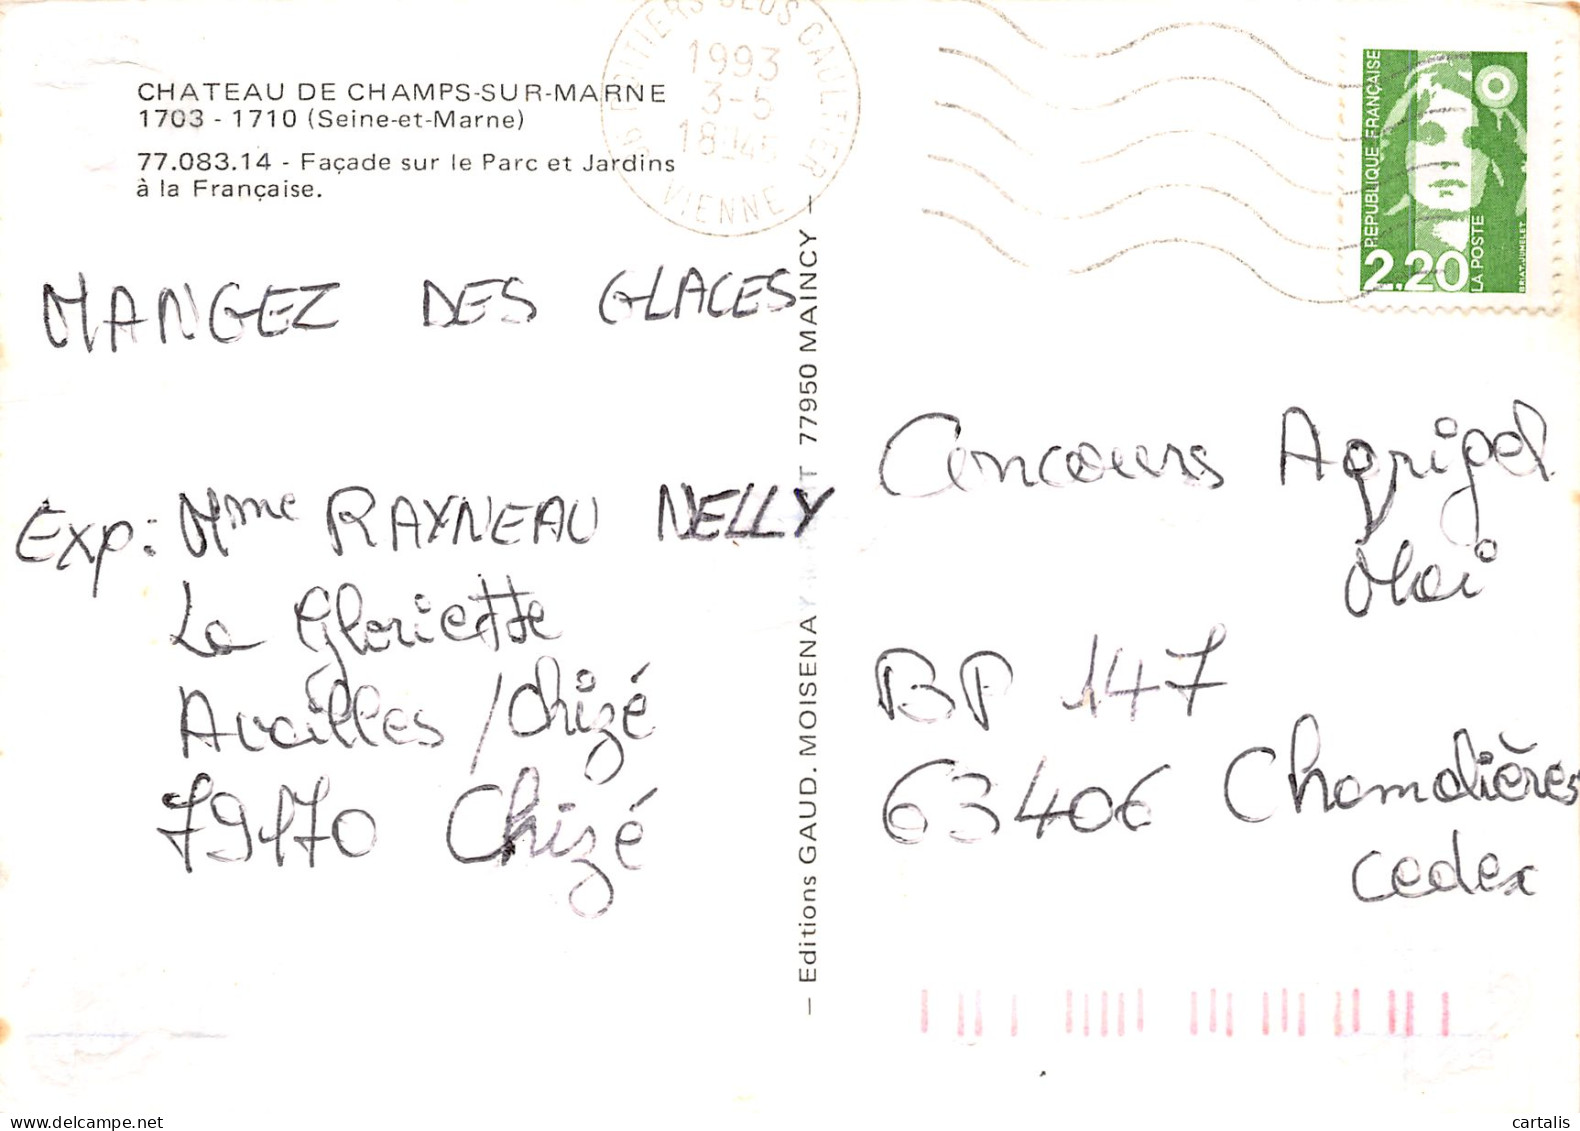 CHATEAU DE CHAMPS-SUR-MARNE
1703 - 1710 (Seine-et-Marne)
77.083.14 - Façade sur le Parc et Jardins
à la Française.
1993
3-5
VIENNE
REPUBLIQUE FRANÇAISE
2.20
LA POSTE
BRIAT.JUMELET
MANGEZ DES GLACES
Exp: Mme RAYNEAU NELLY
La Gloriette
Availles / Chizé
79170 Chizé
— Editions GAUD. MOISENAY 77950 MAINCY —
Concours Agrigel
Mai
BP 147
63406 Chamalières
cedex
www.delcampe.net
cartalis